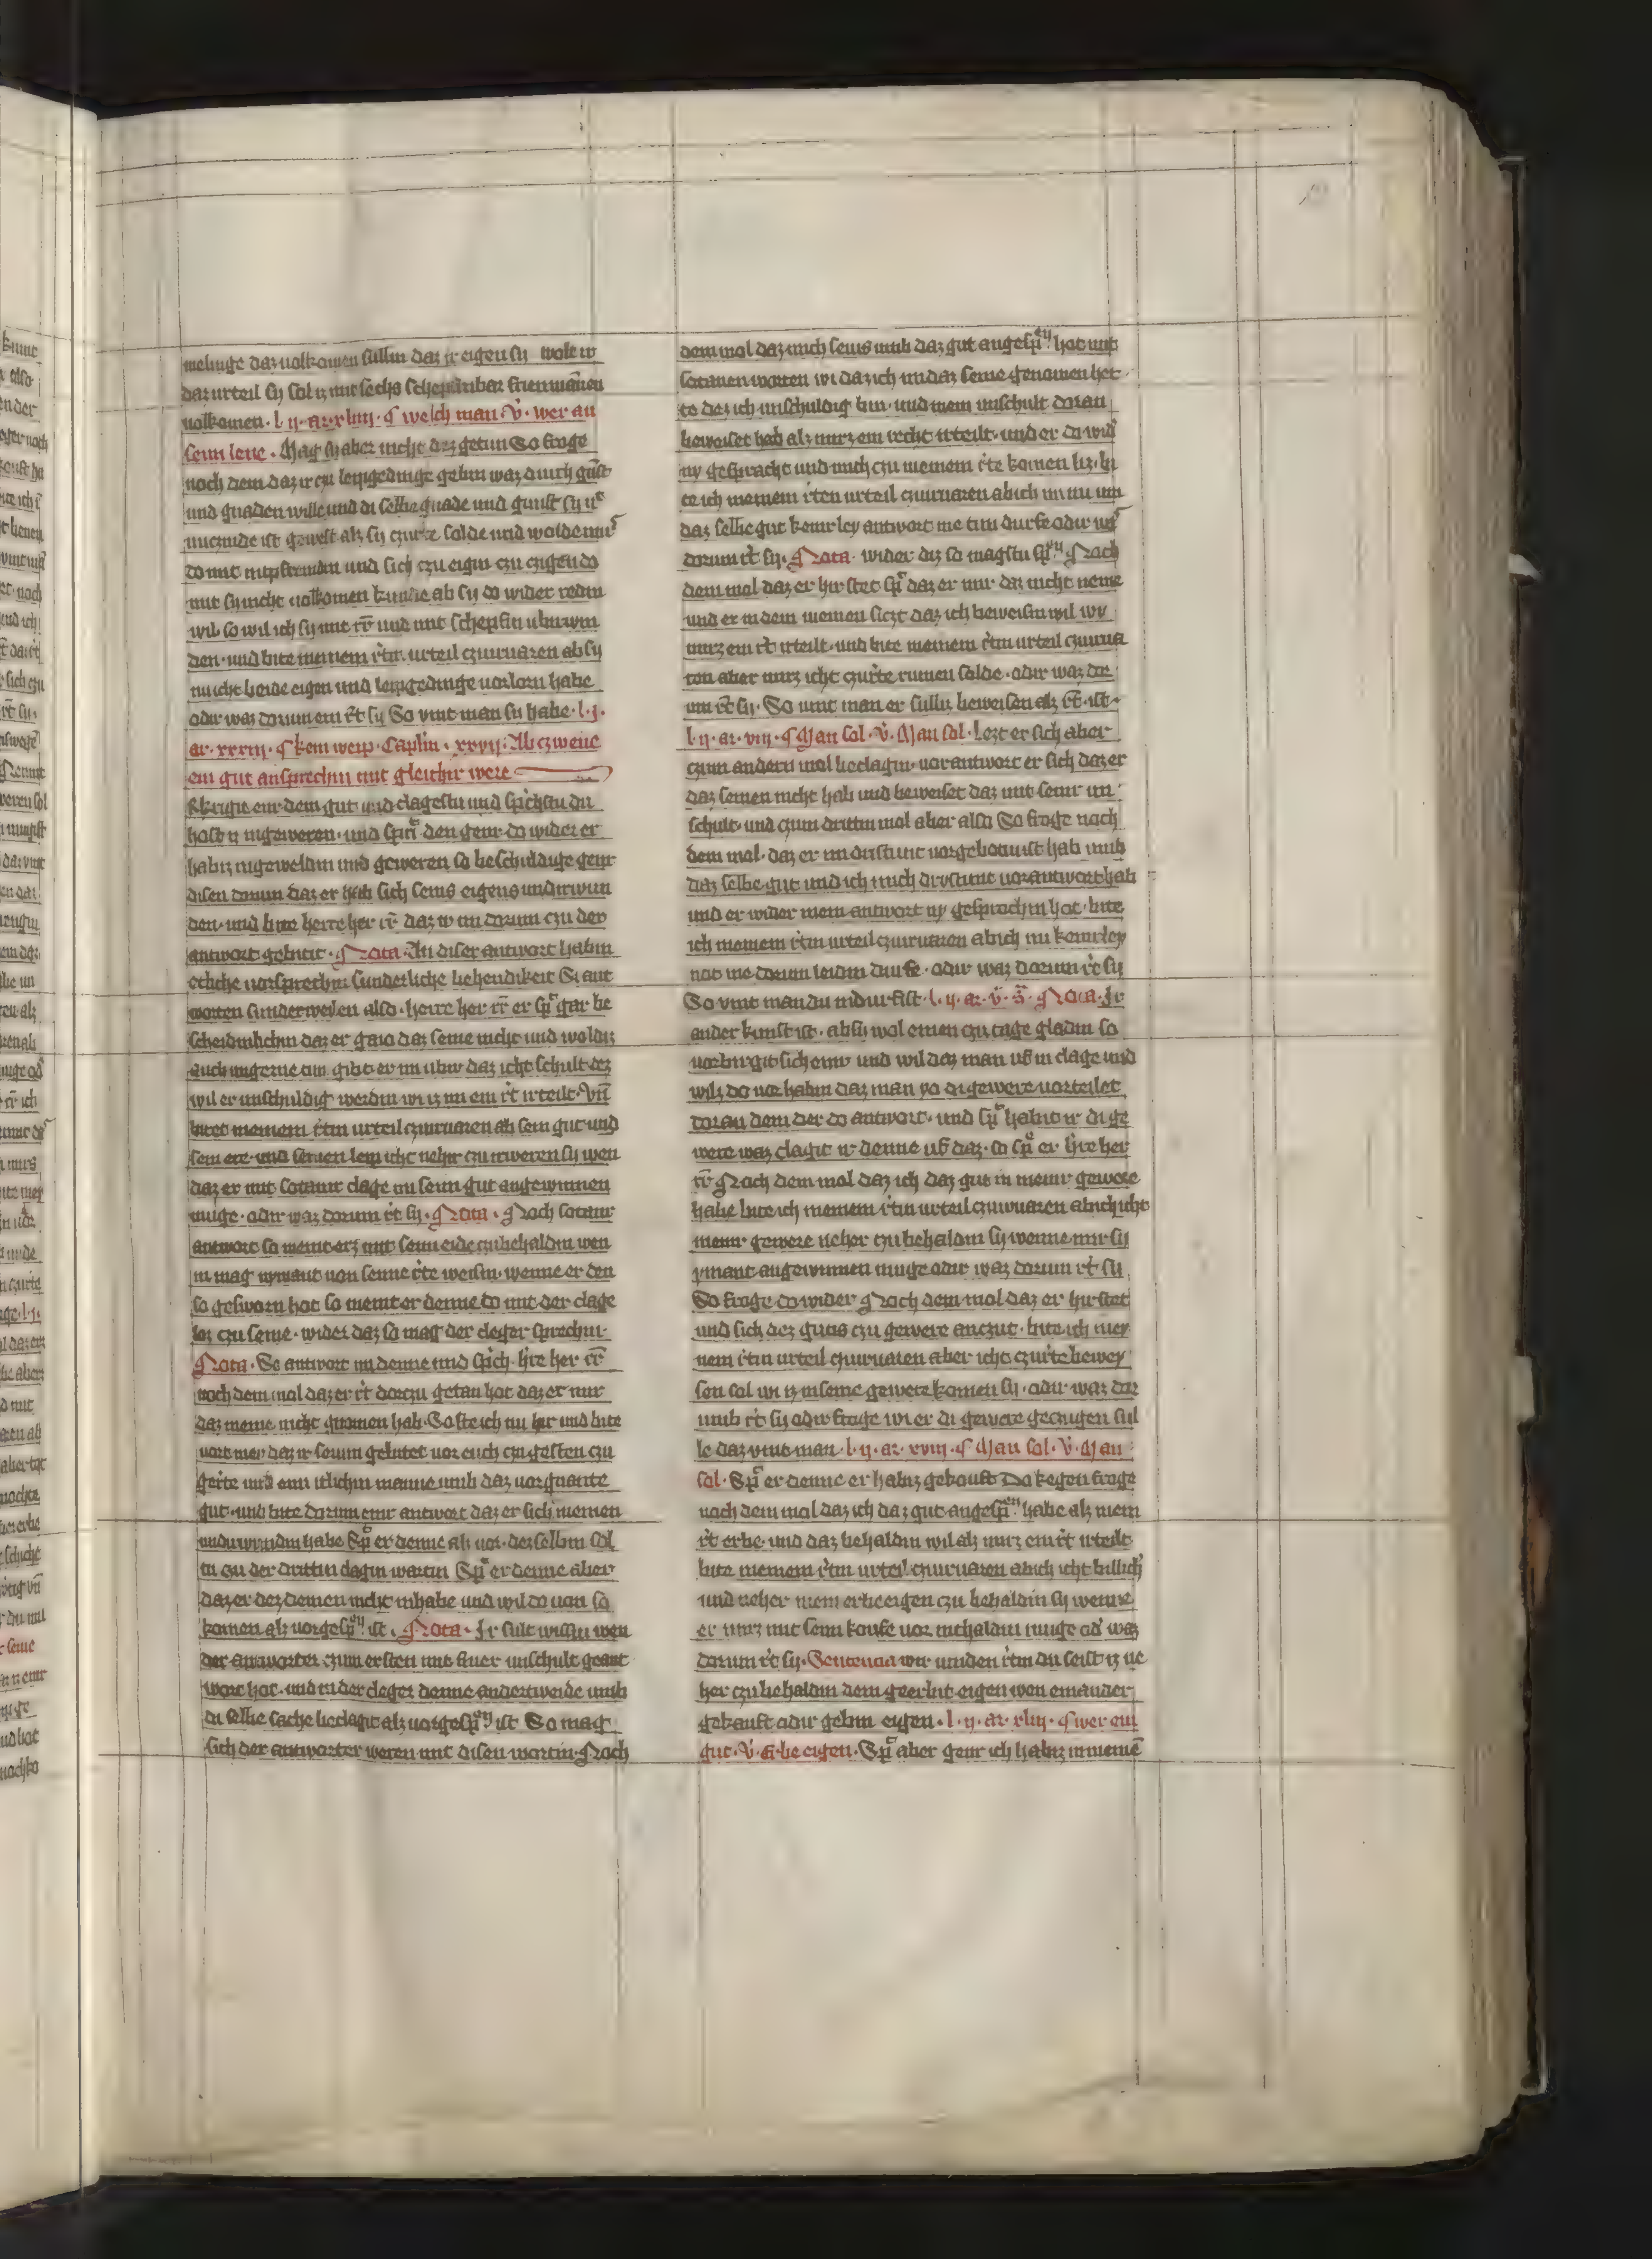 melunge daz uolkomen sulln daz ir eigen sy wolt ir
daz urteil sy sol iz mit sechs schepinbar frien mānen
uolkomen. l. ij. ar. xliiij. ¶ welch man. v̊. wer an
seim lene. Mag sy aber nicht dez getun So froge
noch dem daz ir czu leipgedinge gebin waz durch gūst
und gnaden wille und di selbe gnade und gunst sy
nuczinde ist gewest alz sy czurte solde und wolde
do mit und sich czu eigin czu czugen do
mit sy nicht uolkomen kunne ab sy do wider redin
wil so wil ich sy mit rr̄ und mit schepfin uburwin
den. und bite meinem r̄tin urteil czuuruaren ab sy
nu icht beide eigen und leipgedinge uorlorn habe
odir waz dorum ein rt̄ sy So vint man sy habe. l. j.
ar. xxxij. ¶ kein weip. Caplm. xxvij. Ab czwene
ein gut ansprechin mit glichir were
krigit eur dem gut und clagestu und sprichstu du
host iz in geweren. und spricht den genr do wider er
habiz in geweldin und geweren so beschuldige genr
disen dorum daz er hab sich seins eigens undirwun
den. und bite herre her rr̄ daz ir im dorum czu der
antwort gebitit. Nota. An diser antwort habin
etliche uorsprechin sunderliche behendikeit Si ant
worten sundirweilen also. herre her rr̄ er sp̄ gar be
scheidinlichin daz er gaio daz seine nicht und woldiz
auch ungerne tun gibt er im ubir daz icht schult dez
wil er unschuldig werdin wi iz im ein rt̄ irteilt. Vn̄
bitet meinem r̄tin urteil czuuruaren ab sein gut und
sein ere und seinen leip icht nehir czu irweren sy wen
daz er mit sotanir clage im seun gut angewinnen
muge. odir waz dorum rt̄ sy. Nota. Noch sotanir
antwort so meint erz mit seim eide czubehaldin wen
in mag nymant uon seime r̄te weisin. wenne er den
so gesworn hot so meint er denne do mit der clage
loz czu seine. wider daz so mag der cleger sprechin.
Nota. So antwort im denne und sprich. h̄re her rr̄
noch dem mol daz er rt̄ dorczu getan hot daz er mir
daz meine nicht gnomen hab. So ste ich nu hir und bite
uort mer daz ir seuim gebitet uor euch czu gesten czu
gerte und eim itlichin manne umb daz uorgnante
gut. und bite dorum einr antwort daz er sich meinen
undirwundin habe Sp̄ er denne alz uor. dez selbin sol
tu czu der drittin clagin wartin Sp̄ er denne aber
daz er dez deinen nicht inhabe und wil do uon so
komen alz uorgesp̄ ist. Nota. Ir sult wissin wen
der antworter czum ersten mit einer unschult geant
wort hot. und in der cleger denne anderweide umb
di selbe sache beclagit alz uorgesp̄ ist So mag
sich der antworter weren mit disen wortin. Noch
dem mol daz mich seins umb daz gut angesp̄ hot mit
sotanen worten wi daz ich im daz seine genomen het
te dez ich unschuldig bin. und mein unschult doran
beweiset hab alz mirz ein recht irteilt. und er do wid̄
ny gesprocht und mich czu meinem r̄te komen liz. bi
te ich meinem r̄ten urteil czuuruaren ab ich im nu um
daz selbe gut keinrley antwort me tun durfe odir
dorum rt̄ sy. Nota. wider diz so magstu Noch
dem mol daz er hir stet sp̄ daz er mir daz nicht neme
und er in dem meinen siczt daz ich beweisin wil wy
mirz ein rt̄ irteilt. und bite meinem r̄tin urteil czuurua
ren aber mirz icht czurte rumen solde. odir waz dor
um rt̄ sy. So vint man er sulliz beweisen alz rt̄ ist.
l. ij. ar. viij. ¶ Man sol. v̊. Man sol. Lezt er sich aber
czum andern mol beclagin. uorantwort er sich daz er
daz seinen nicht hab und beweiset daz mit seinr un
schult. und czum drittin mol aber also So froge noch
dem mol. daz er im dristunt uorgebotin ist hab umb
daz selbe gut und ich mich dristunt uorantwort hab
und er wider mein antwort ny gesprochin hot. bite
ich meinem r̄tin urteil czuuruaren ab ich nu keinrley
not me dorum leidin durfe. odir waz dorum rt̄ sy
So vint man du indurfist. l. ij. ar. v̊. ā. Nota. Ir
ander kunst ist. ab su wol einen czu tage gladin so
uorburgit sich einr und wil dez man uf in clage und
wilz do uor habin daz man yo di gewere uorteilet
doran dem der do antwort. und sp̄ habit ir di ge
were waz clagit ir denne uf daz. so sp̄ er h̄re her
rr̄ Noch dem mol daz ich daz gut in meinr gewere
habe bite ich meinem r̄tin urteil czuuruaren ab ich icht
meinr gewere neher czu behaldin sy wenne mir sy
ymant angewinnen muge odir waz dorum rt̄ sy.
So froge do wider Noch dem mol daz er hir stet
und sich dez gutis czu gewere anczut. bite ich mey
nem r̄tin urteil czuuruaren aber icht czurte bewey
sen sol wi iz in seine gewere komen sy. odir waz dor
umb rt̄ sy odir froge wi er di gewere geczugen sul
le daz vint man. l. ij. ar. xviij. ¶ Man sol. v̊. Man
sol. Sp̄ er denne er habiz gekouft Do kegen froge
noch dem mol daz ich daz gut angesp̄ habe alz mein
rt̄ erbe. und daz behaldin wil alz mirz ein rt̄ irteilt.
bite meinem r̄tin urteil czuuruaren ab ich icht billich̄
und neher mein erbeeigen czu behaldin sy wenne
er mirz mit seim koufe uor inthaldin muge od̄ waz
dorum rt̄ sy. Sentencia wir uinden r̄tin du seist iz ne
her czu behaldin dem geerbit eigen wen einander
gekauft odir gebin eigen. l. ij. ar. xliij. ¶ wer ein
gut. v̊. erbe eigen. Sp̄ aber genr ich habiz in meinē